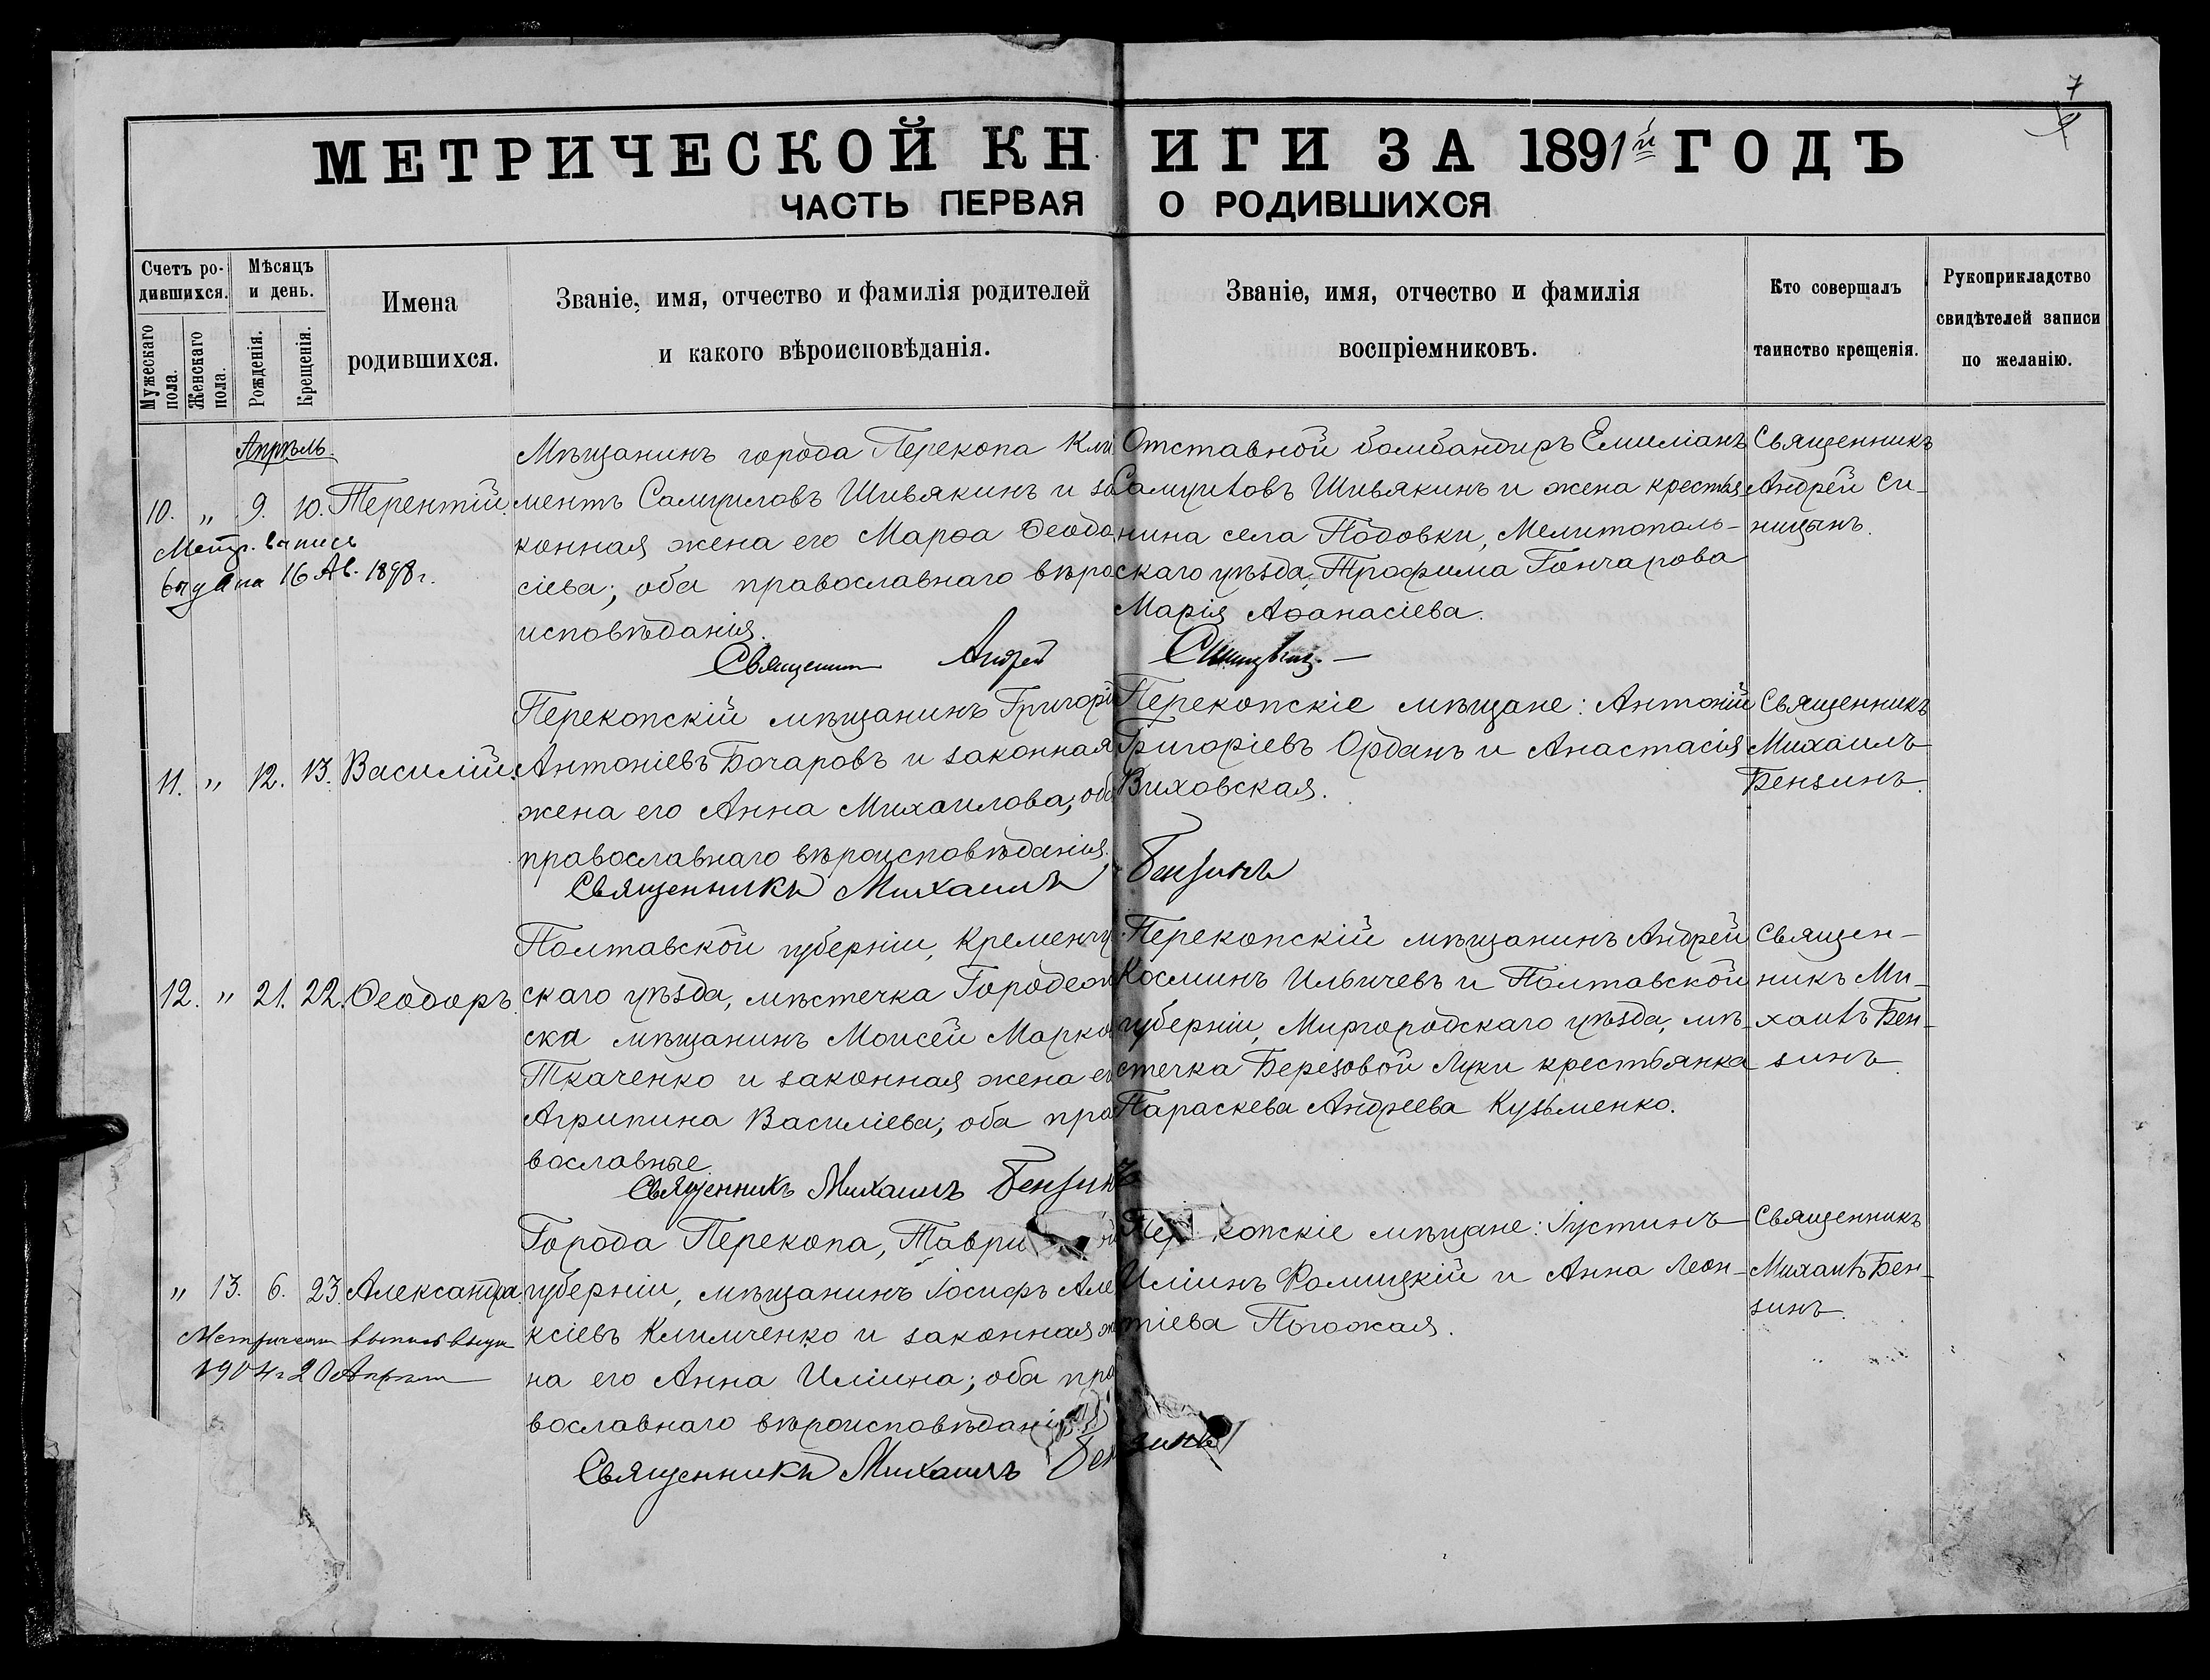 7
9
МЕТРИЧЕСКОЙ КНИГИ ЗА 1891й ГОДЪ
ЧАСТЬ ПЕРВАЯ О РОДИВШИХСЯ
Счетъ ро-
дившихся.
Мужескаго пола.
Женскаго пола.
Мѣсяцъ
и день.
Рожденія.
Крещенія.
Имена
родившихся.
Званіе, имя, отчество и фамилія родителей
и какого вѣроисповѣданія.
Званіе, имя, отчество и фамилія
воспріемниковъ.
Кто совершалъ
таинство крещенія.
Рукоприкладство
свидѣтелей записи
по желанію.
Апрѣль.
10. „ 9. 10. Терентій.
Метр. выпись
выдана 16 Ав. 1898 г.
Мѣщанинъ города Перекопа Кли
ментъ Самуиловъ Шивякинъ и за
конная жена его Марѳа Ѳеодо
сіева; оба православнаго вѣро
исповѣданія.
Отставной бомбандиръ Емиліанъ
Самуиловъ Шивякинъ и жена крестья
нина села Подовки, Мелитополь-
скаго уѣзда, Трофима Гончарова
Марія Аѳанасіева.
Священникъ
Андрей Си-
ницынъ.
Священникъ Андрей Синицынъ
11. „ 12. 13. Василій.
Перекопскій мѣщанинъ Григорій
Антоніевъ Бочаровъ и законная
жена его Анна Михаилова; оба
православнаго вѣроисповѣданія.
Перекопскіе мѣщане: Антоній
Григоріевъ Орданъ и Анастасія
Виховская.
Священникъ
Михаилъ
Бензинъ.
Священникъ Михаилъ Бензинъ
12. „ 21. 22. Ѳеодоръ.
Полтавской губерніи, Кременчуг
скаго уѣзда, мѣстечка Городеои
ска мѣщанинъ Моисей Марко
Ткаченко и законная жена его
Агрипина Василіева; оба пра
вославные.
Перекопскій мѣщанинъ Андрей
Косминъ Ильичевъ и Полтавской
губерніи, Миргородскаго уѣзда, мѣ-
стечка Березовой Луки крестьянка
Параскева Андреева Кузьменко.
Священ-
никъ Ми-
хаилъ Бен-
зинъ.
Священникъ Михаилъ Бензинъ
„ 13. 6. 23. Александра.
Метрическая выпись выдана
1904 г 20 Апрѣля
Города Перекопа, Таври й
губерніи, мѣщанинъ Іосифъ Але
ксіевъ Климченко и законная же
на его Анна Иліина; оба пра
вославнаго вѣроисповѣданія
Пер копскіе мѣщане: Іустинъ
Иліинъ Фомицкій и Анна Леон-
тіева Погожая.
Священникъ
Михаилъ Бен-
зинъ.
Священникъ Михаилъ Бензинъ